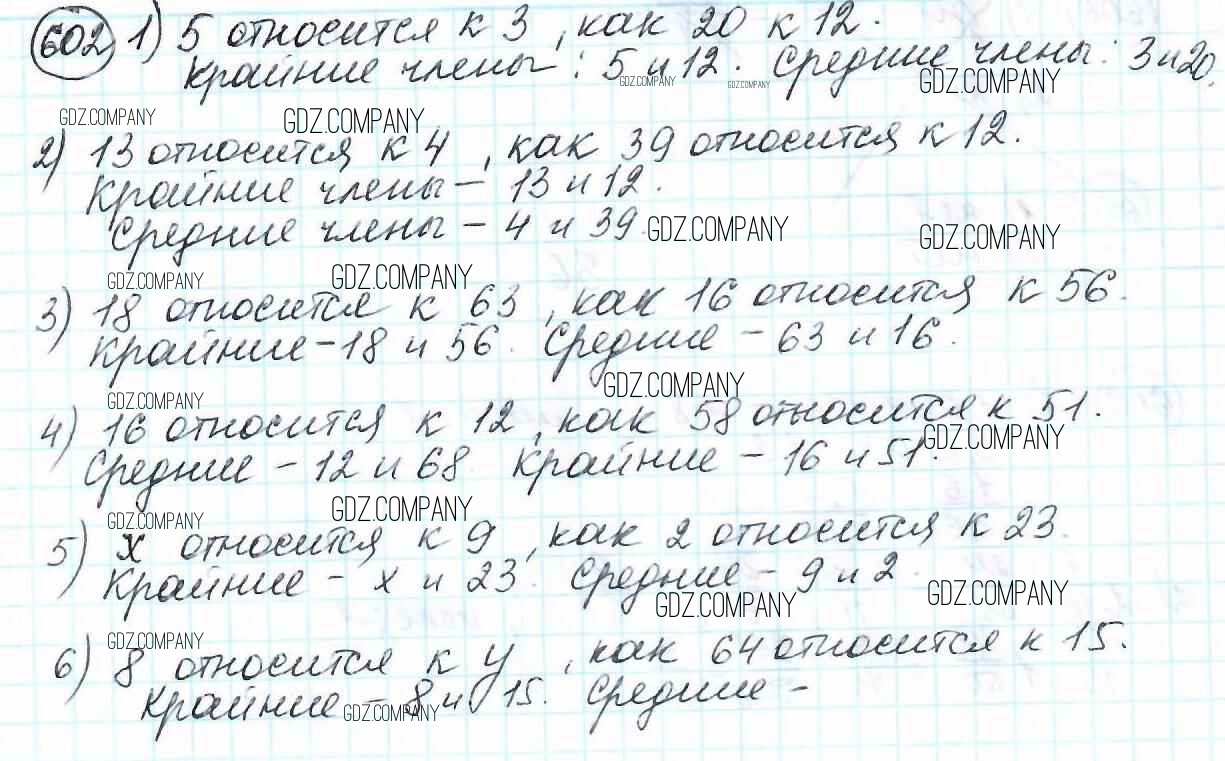 602 1) 5 относится к 3, как 20 к 12.
Крайние члены: 5 и 12. Средние члены: 3 и 20.
GDZ.COMPANY GDZ.COMPANY GDZ.COMPANY
GDZ.COMPANY GDZ.COMPANY
2) 13 относится к 4, как 39 относится к 12.
Крайние члены – 13 и 12.
Средние члены – 4 и 39 GDZ.COMPANY GDZ.COMPANY
GDZ.COMPANY GDZ.COMPANY
3) 18 относится к 63, как 16 относится к 56.
Крайние – 18 и 56. Средние – 63 и 16.
GDZ.COMPANY GDZ.COMPANY
4) 16 относится к 12, как 58 относится к 51.
GDZ.COMPANY
Средние – 12 и 68 Крайние – 16 и 51.
GDZ.COMPANY GDZ.COMPANY
5) х относится к 9, как 2 относится к 23.
Крайние – х и 23. Средние – 9 и 2
GDZ.COMPANY GDZ.COMPANY
GDZ.COMPANY
6) 8 относится к у, как 64 относится к 15.
Крайние – 8 и 15. Средние –
GDZ.COMPANY